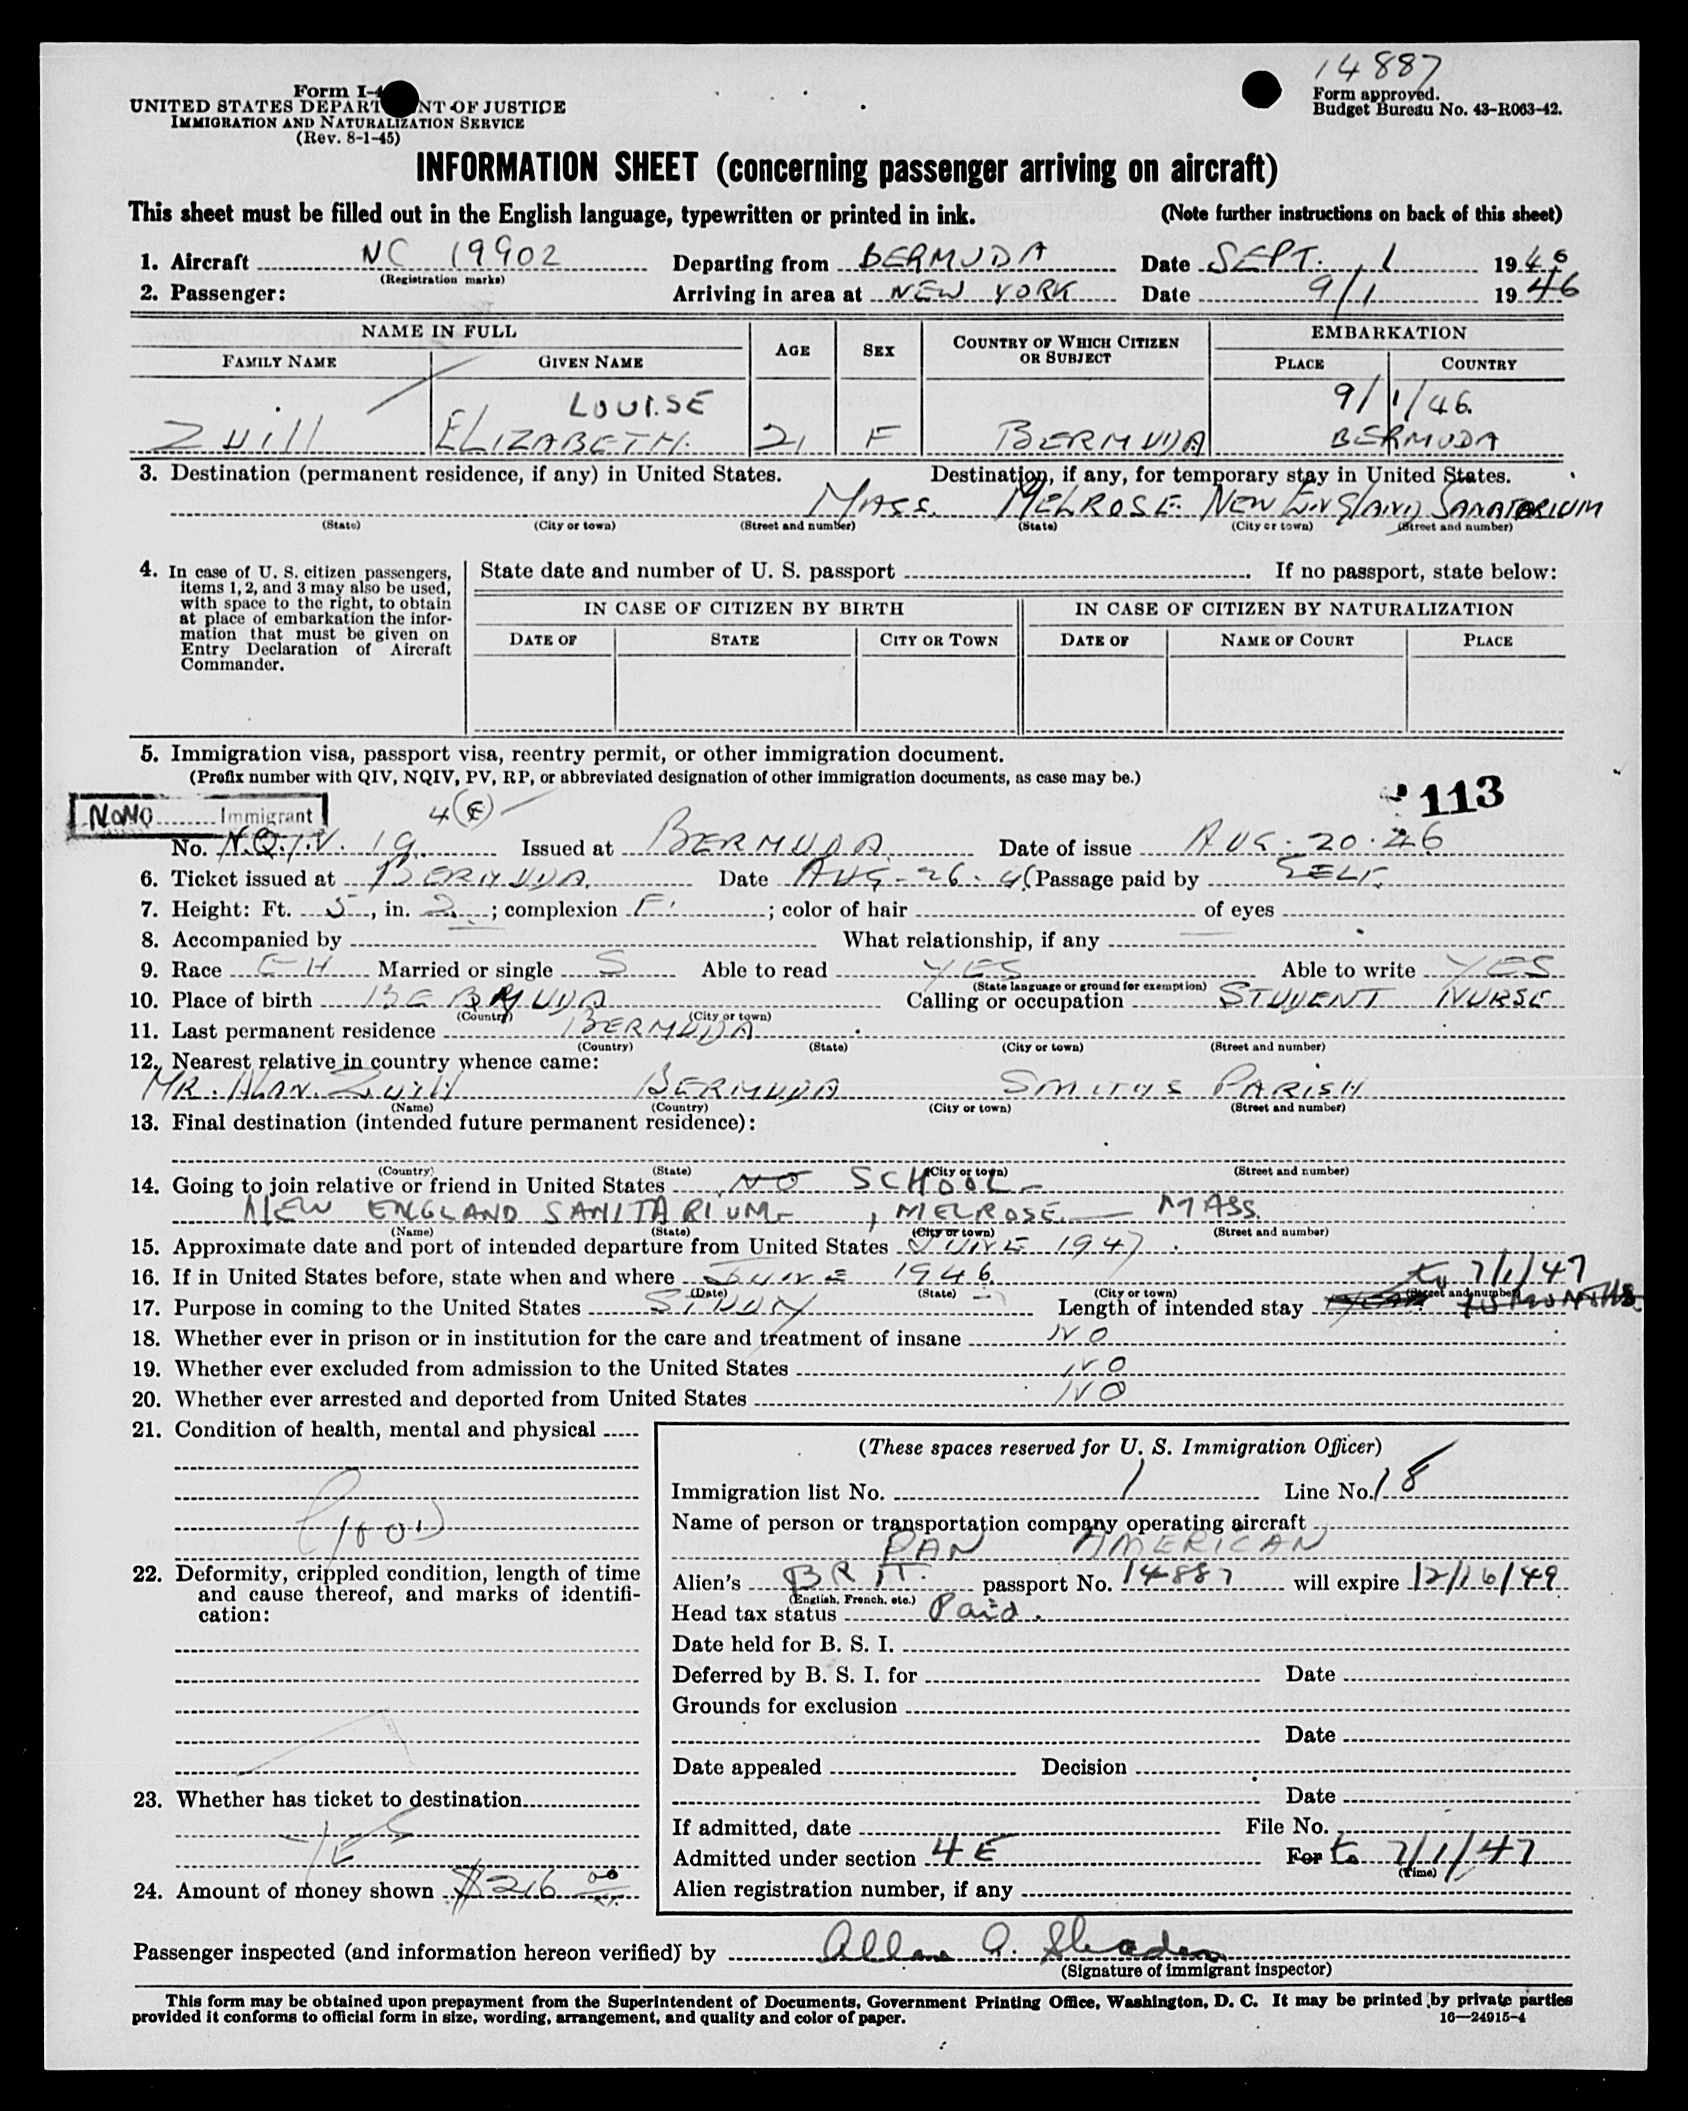 14887
Form I-4
UNITED STATES DEPART NT OF JUSTICE
IMMIGRATION AND NATURALIZATION SERVICE
(Rev. 8-1-45)
Form approved.
Budget Bureau No. 43-R063-42.
INFORMATION SHEET (concerning passenger arriving on aircraft)
This sheet must be filled out in the English language, typewritten or printed in ink. (Note further instructions on back of this sheet)
1. Aircraft NC 19902 Departing from BERMUDA Date SEPT. 1 1946
(Registration marks)
2. Passenger: Arriving in area at NEW YORK Date 9/1 1946
NAME IN FULL AGE SEX COUNTRY OF WHICH CITIZEN OR SUBJECT EMBARKATION
FAMILY NAME GIVEN NAME PLACE COUNTRY
LOUISE 9/1/46.
Zuill ELIZABETH. 21 F BERMUDA BERMUDA
3. Destination (permanent residence, if any) in United States. Destination, if any, for temporary stay in United States.
MASS. MELROSE NEW ENGLAND SANATORIUM
(State) (City or town) (Street and number) (State) (City or town) (Street and number)
4. In case of U. S. citizen passengers, items 1, 2, and 3 may also be used, with space to the right, to obtain at place of embarkation the information that must be given on Entry Declaration of Aircraft Commander.
State date and number of U. S. passport If no passport, state below:
IN CASE OF CITIZEN BY BIRTH IN CASE OF CITIZEN BY NATURALIZATION
DATE OF STATE CITY OR TOWN DATE OF NAME OF COURT PLACE
5. Immigration visa, passport visa, reentry permit, or other immigration document.
(Prefix number with QIV, NQIV, PV, RP, or abbreviated designation of other immigration documents, as case may be.)
113
NONO Immigrant 4(E)
No. N.Q.I.V. 19. Issued at BERMUDA. Date of issue AUG. 20. 46
6. Ticket issued at BERMUDA. Date AUG-26. 4 Passage paid by SELF.
7. Height: Ft. 5, in. 2; complexion F; color of hair of eyes
8. Accompanied by What relationship, if any
9. Race Married or single S Able to read YES Able to write YES
(State language or ground for exemption)
10. Place of birth BERMUDA Calling or occupation STUDENT NURSE
(Country) (City or town)
11. Last permanent residence BERMUDA
(Country) (State) (City or town) (Street and number)
12. Nearest relative in country whence came:
MR. ALAN. ZUILL BERMUDA SMITHS PARISH
(Name) (Country) (City or town) (Street and number)
13. Final destination (intended future permanent residence):
(Country) (State) (City or town) (Street and number)
14. Going to join relative or friend in United States NO SCHOOL-
NEW ENGLAND SANITARIUM- , MELROSE — MASS.
(Name) (State) (City or town) (Street and number)
15. Approximate date and port of intended departure from United States JUNE 1947.
16. If in United States before, state when and where JUNE 1946. to 7/1/47
(Date) (State) (City or town) (Street and number)
17. Purpose in coming to the United States STUDY Length of intended stay 10 MONTHS
18. Whether ever in prison or in institution for the care and treatment of insane NO
19. Whether ever excluded from admission to the United States NO
20. Whether ever arrested and deported from United States NO
21. Condition of health, mental and physical
GOOD
22. Deformity, crippled condition, length of time and cause thereof, and marks of identification:
23. Whether has ticket to destination
YES
24. Amount of money shown $216 00
(These spaces reserved for U. S. Immigration Officer)
Immigration list No. 1 Line No. 18
Name of person or transportation company operating aircraft
PAN AMERICAN
Alien's BRIT. passport No. 14887 will expire 12/16/49
(English, French, etc.)
Head tax status Paid.
Date held for B. S. I.
Deferred by B. S. I. for Date
Grounds for exclusion
Date
Date appealed Decision
Date
If admitted, date File No.
Admitted under section 4E For to 7/1/47
(Time)
Alien registration number, if any
Passenger inspected (and information hereon verified) by Allan A.
(Signature of immigrant inspector)
This form may be obtained upon prepayment from the Superintendent of Documents, Government Printing Office, Washington, D. C. It may be printed by private parties
provided it conforms to official form in size, wording, arrangement, and quality and color of paper. 16—24915-4